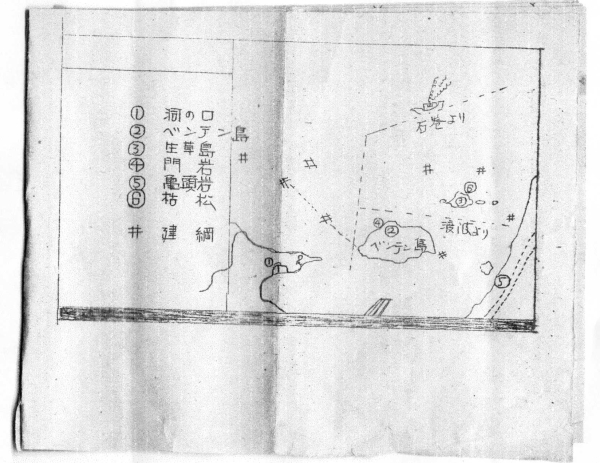 ① 洞の口
② ベンテン島
③ 生草島
④ 門岩
⑤ 亀頭岩
⑥ 枯松
井 建網
石巻より
渡波より
⑥
③
④
②
ベンテン島
①
⑤
井
井
井
井
井
井
井
井